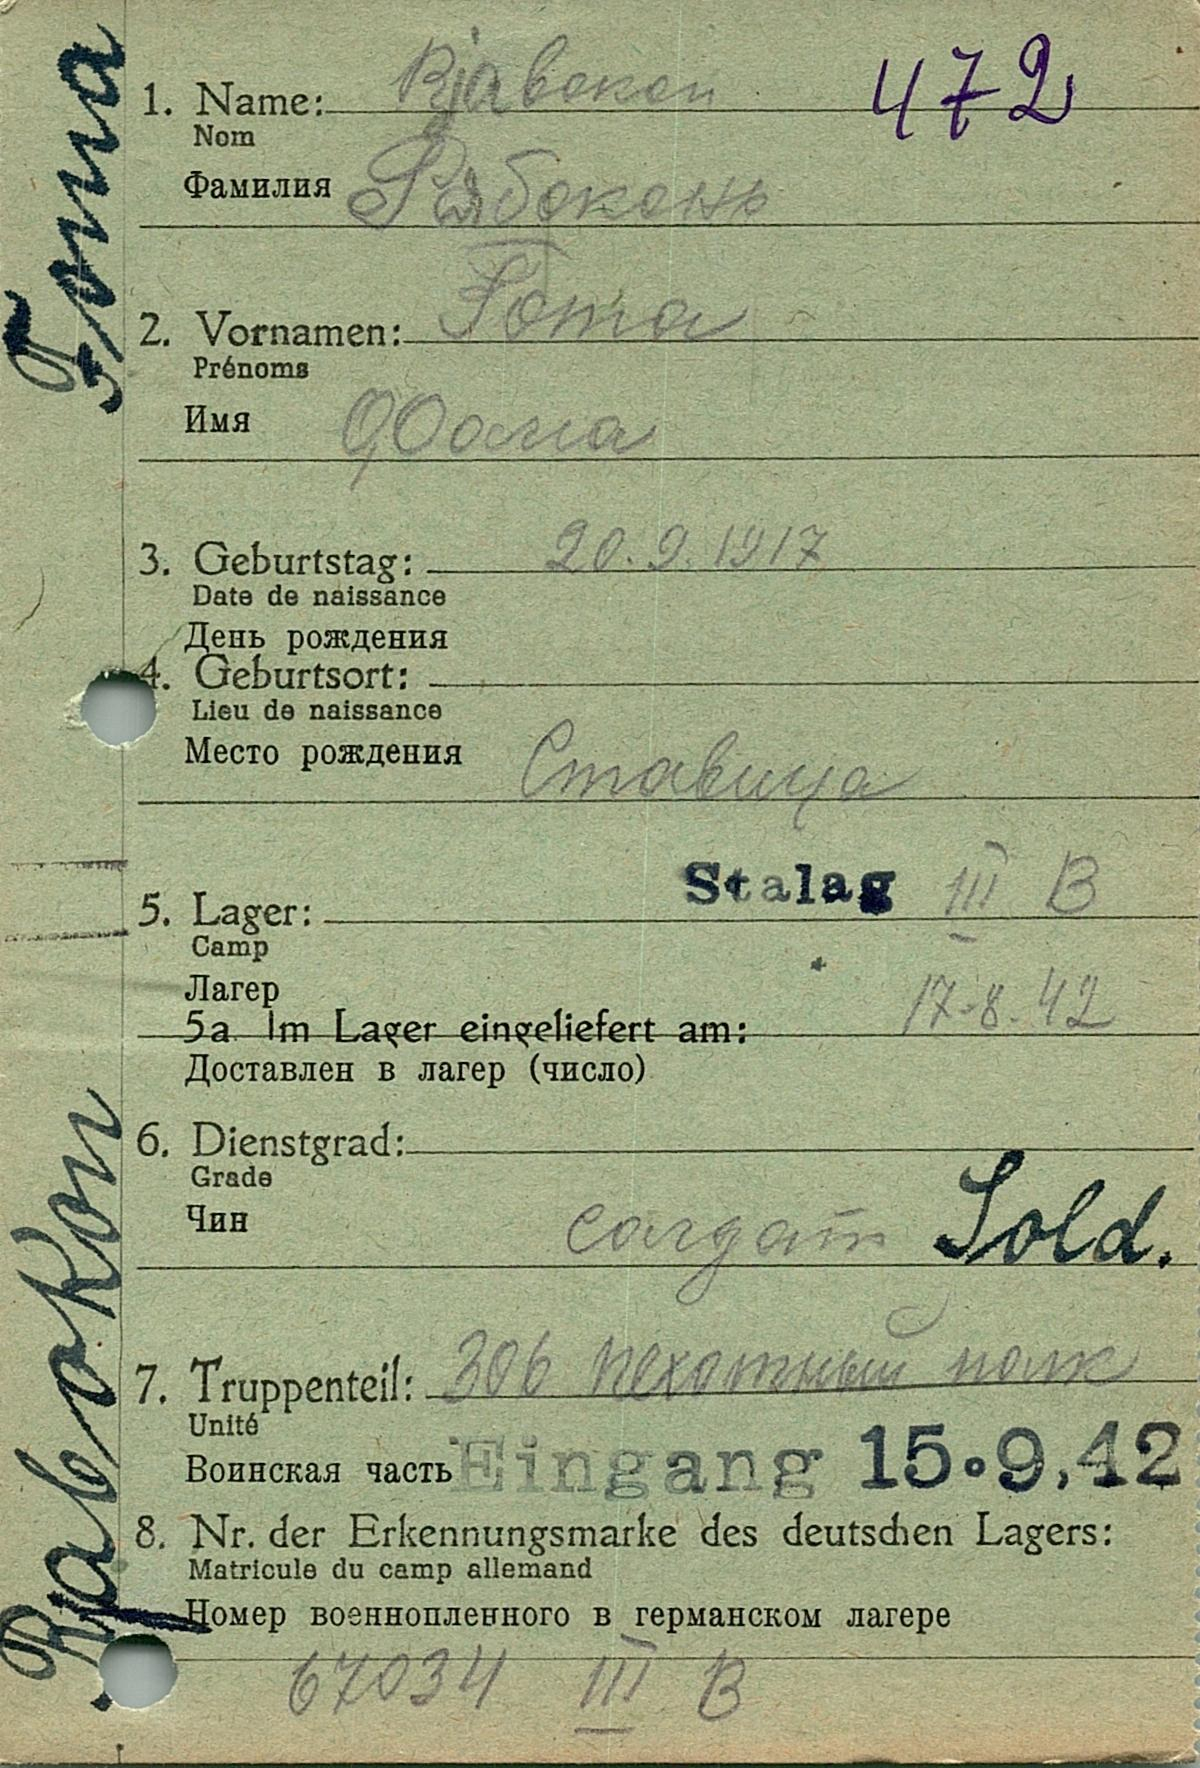 472
1. Name: Rjabokon
Nom
Фамилия Рябоконь
2. Vornamen: Foma
Prénoms
Имя Фома
3. Geburtstag: 20.9.1917
Date de naissance
День рождения
4. Geburtsort:
Lieu de naissance
Место рождения Ставица
5. Lager: Stalag III B
Camp
Лагер
5a Im Lager eingeliefert am: 17.8.42
Доставлен в лагер (число)
6. Dienstgrad:
Grade
Чин солдат Sold.
7. Truppenteil: 306 пехотный полк
Unité
Воинская часть Eingang 15.9.42
8. Nr. der Erkennungsmarke des deutschen Lagers:
Matricule du camp allemand
Номер военнопленного в германском лагере
67034 III B
Rjabokon Foma